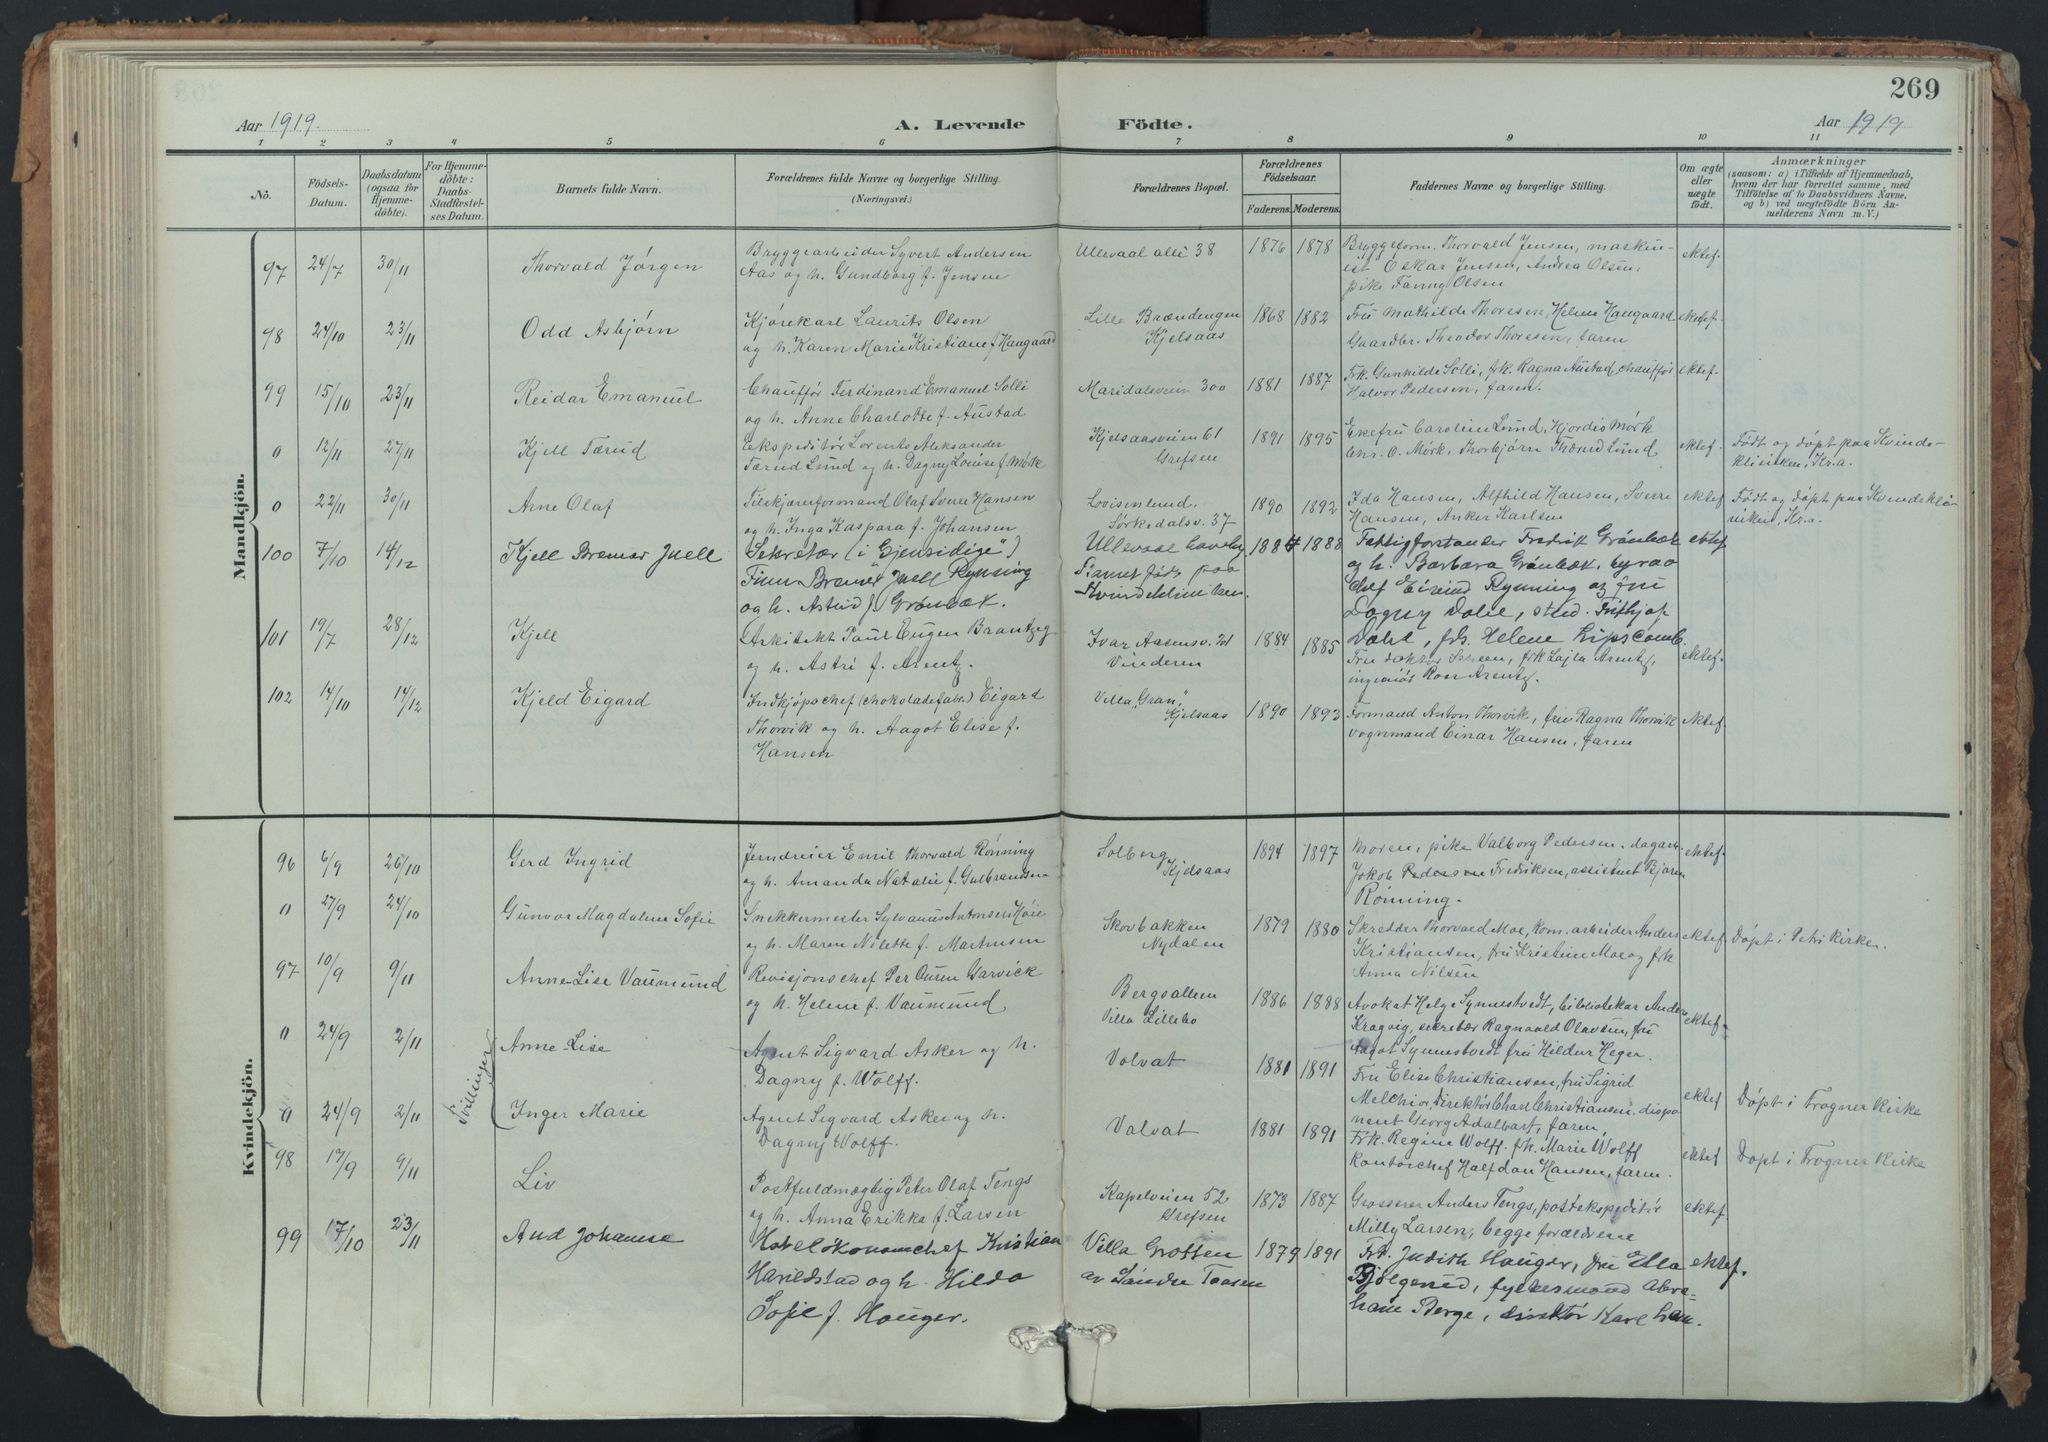 269
Aar 1919.
A. Levende
Födte.
Aar 1919
1 2 3 4 5 6 7 8 9 10 11
No.
Födsels-
Datum.
Daabsdatum
(ogsaa for
Hjemme-
döbte).
For Hjemme-
döbte:
Daabs-
Stadfæstel-
ses Datum.
Barnets fulde Navn.
Forældrenes fulde Navne og borgerlige Stilling.
(Næringsvei.)
Forældrenes Bopæl.
Forældrenes
Födselsaar.
Faderens. Moderens.
Faddernes Navne og borgerlige Stilling.
Om ægte
eller
uægte
födt.
Anmærkninger
(saasom: a) i Tilfælde af Hjemmedaab,
hvem der har forrettet samme, med
Tilföielse af to Daabsvidners Navne,
og b) ved uægtefödte Börn An-
melderens Navn m. V.)
Mandkjön.
97 24/7 30/11 Thorvald Jørgen
Bryggearbeider Syvert Andersen
Aas og h. Gundborg f. Jensen
Ullevaal allé 38
1876 1878
Bryggeform. Thorvald Jensen, maskin-
ist Oskar Jensen, Andrea Olsen,
pike Fanny Olsen
ektef.
98 24/10 23/11 Odd Asbjørn
Kjørekarl Laurits Olsen
og h. Karen Marie Kristiane f. Haugaard
Lille Brændengen
Kjelsaas
1868 1882
Fru Mathilde Thoresen, Helene Haugaard
Gaardbr. Theodor Thoresen, faren
ektef.
99 15/10 23/11 Reidar Emanuel
Chauffør Ferdinand Emanuel Solli
og h. Anne Charlotte f. Austad
Maridalsveien 300
1881 1887
Frk. Gunhilde Solli, frk. Ragna Austad, chauffør
Halvor Pedersen, faren.
ektef.
0 12/11 27/11 Kjell Tærud
Ekspeditør Lorents Aleksander
Tærud Lund og h. Dagny Louise f. Mørk
Kjelsaasveien 61
Grefsen
1891 1895
Ekefru Caroline Lund, Hjordis Mørk
Chr. O. Mørk, Thorbjørn Tærud Lund
ektef.
Født og døpt paa Kvinde-
kliniken, Kr.a.
0 22/11 30/11 Arne Olaf
Tilskjærerformand Olaf Sverre Hansen
og h. Inga Kaspara f. Johansen
Lovisenlund.
Sørkedalsv. 37
1890 1892
Ida Hansen, Alfhild Hansen, Sverre
Hansen, Anker Karlsen
ektef.
Født og døpt paa Kvindekli-
niken, Kr.a.
100 7/10 14/12 Kjell Bremer Juell
Sekretær (i "Gjensidige")
Finn Bremer Juell Rynning
og h. Astrid f. Grønbæk.
Ullevaal haveby
Barnet født paa
Kvindekliniken.
1884 1888
Fattigforstander Fredrik Grønbæk
og h. Barbara Grønbæk, byraa
chef Eivind Rynning og fru
Dagny Dahl, stud. Frithjof
Dahl, frk. Helene Lipscomb.
ektef
101 19/7 28/12 Kjell
Arkitekt Paul Eugen Brantzeg
og h. Astri f. Arentz.
Ivar Aasensv. 21
Vinderen
1884 1885
Fru doktor Scheen, frk Lajla Arentz,
ingeniør Roar Arentz.
ektef.
102 14/10 14/12 Kjeld Eigard
Indkjøpschef (chokoladefabr.) Eigard
Thorvik og h. Aagot Elise f.
Hansen
Villa "Gran",
Kjelsaas
1890 1893
Formand Anton Thorvik, fru Ragna Thorvik
vognmand Einar Hansen, faren
ektef.
Kvindekjön.
96 6/9 26/10 Gerd Ingrid
Jerndreier Emil Thorvald Rønning
og h. Amanda Natalie f. Gulbrandsen
Solberg
Kjelsaas
1894 1897
Moren, pike Valborg Pedersen, dagarb.
Jakob Fredriksen, assistent Bjarne
Rønning.
ektef.
0 27/9 24/10 Gunvor Magdalene Sofie
Snekkermester Sylvanus Antonsen Höie
og h. Maren Nilette f. Martinsen
Skovbakken
Nydalen
1879 1880
Skrædder Thorvald Moe, kom.arbeider Anders
Kristiansen, fru Kristine Moe og frk
Anna Nilsen
ektef.
Døpt i Petri kirke.
97 10/9 9/11 Anne-Lise Vaumund
Revisjonschef Per Ouren Garvick
og h. Helene f. Vaumund
Bergsalleen
Villa Lillebo
1886 1888
Avokat Helge Synnestvedt, bibliotekar Anders
Krogvig, sekretær Ragnvald Olavsen, fru
Aagot Synnestvedt fru Hildur Heger.
ektef.
0 24/9 2/11 Anne-Lise
Agent Sigvard Asker og h.
Dagny f. Wolff.
Volvat
1881 1891
Fru Elise Christiansen, fru Sigrid
Melchior, direktør Charl Christiansen, dispo
nent Georg Adalbart, faren,
ektef
Døpt i Frogner kirke
Tvillinger
0 24/9 2/11 Inger Marie
Agent Sigvard Asker og h.
Dagny Wolff.
Volvat
1881 1891
Frk. Regine Wolff. frk. Marie Wolff
kontorchef Halfdan Hansen, faren.
ektef
Døpt i Frogner kirke
98 17/9 9/11 Liv
Postfuldmægtig Peter Olaf Tengs
og h. Anna Erikka f. Larsen
Kapelveien 52
Grefsen
1873 1887
Grosserer Anders Tengs, postekspeditør
Milly Larsen, begge forældrene
ektef.
99 17/10 23/11 Aud Johanne
Hotelökonomchef Kristian
Harildstad og h. Hilda
Sofie f. Hauger.
Villa Grotten
av Søndre Taasen
1879 1891
Frk. Judith Hauger, fru Ella
Bjølgerud, fylkesmand Abra-
ham Berge, direktør Karl
ektef.